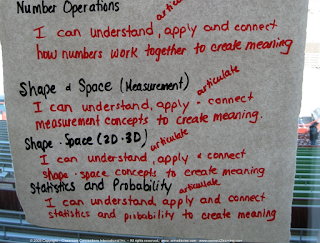 Number Operations
articulate
I can understand, apply and connect
how numbers work together to create meaning
Shape & Space (Measurement)
articulate
I can understand, apply + connect
measurement concepts to create meaning.
Shape + Space (2D + 3D)
articulate
I can understand, apply & connect
shape + space concepts to create meaning
Statistics and Probability
articulate
I can understand, apply and connect
statistics and probability to create meaning